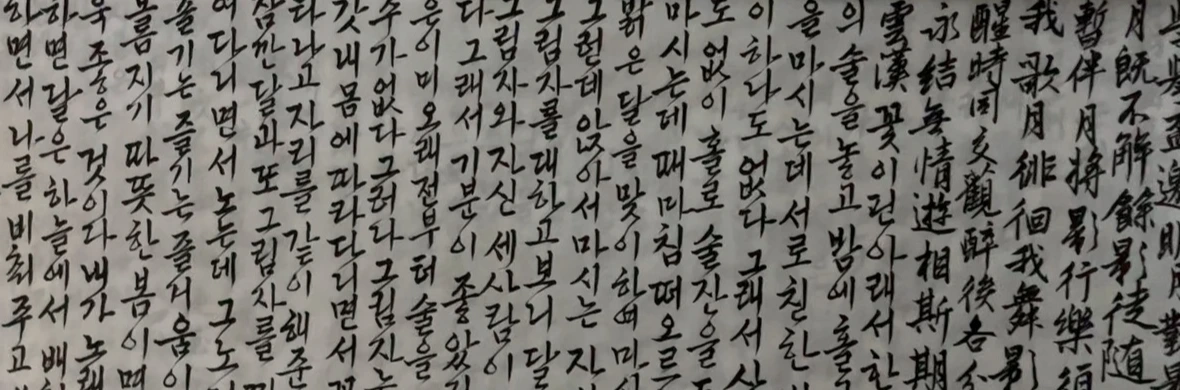 盃邀明月對影
月既不解餘影徒隨
暫伴月將影行樂須
我歌月徘徊我舞影
醒時同交觀醉後各分
永結無情遊相斯期
雲漢꽃이린아래서한
의술을놓고밤에홀
을마시는데서로친한
이하나도없다그래서
도없이홀로술잔을
마시는데때마침떠오르
밝은달을맞이하여마시
그런데앉아서마시는자
그림자를대하고보니달
그림자와자신세사람이
다그래서기분이좋았
은이미오래전부터술을
수가없다그러나그림자는
갓내몸에따라단니면서
라나고자리를같이해준
삼깐달과또그림자를
여다니면서노는데그노
즐기는즐기는즐거움이
름지기따뜻한봄이면
욱좋은것이다내가노래
하면달은하늘에서배
하면서나를비최주고